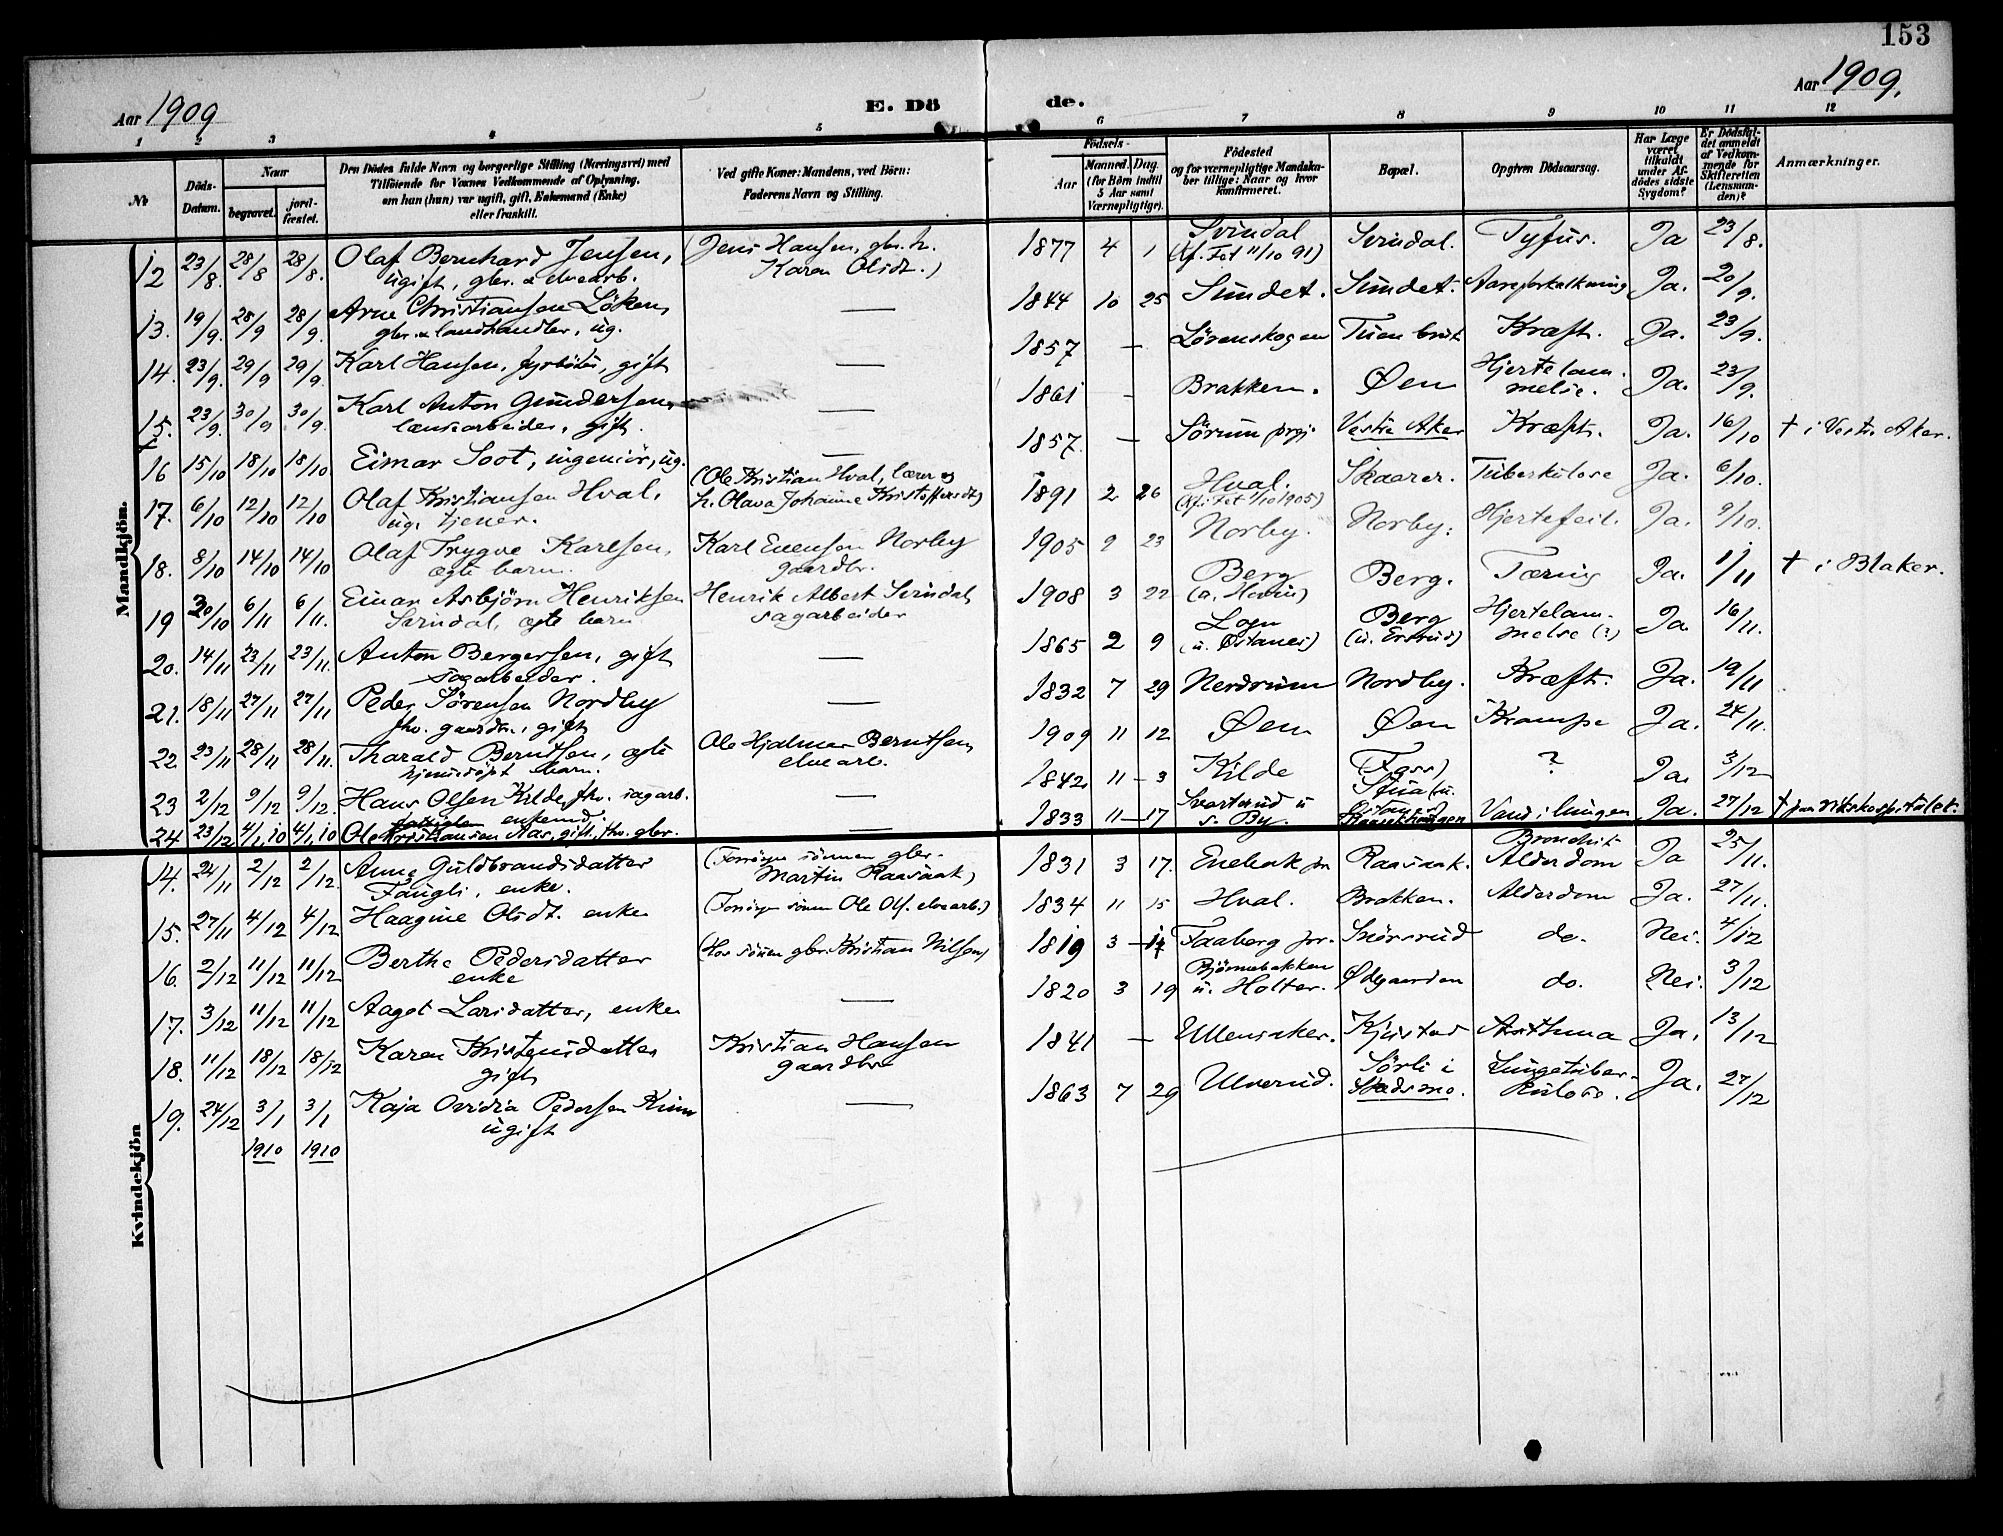 153
Aar 1909
E. Dö
de.
Aar 1909.
1 2 3 4 5 6 7 8 9 10 11 12
№
Döds-Datum.
Naar
begravet.
jord-fæstet.
Den Dödes fulde Navn og borgerlige Stilling (Næringsvei) med
Tilföiende for Voxnes Vedkommende af Oplysning,
om han (hun) var ugift, gift, Enkemand (Enke)
eller fraskilt.
Ved gifte Koner: Mandens, ved Börn:
Faderens Navn og Stilling.
Födsels-
Aar
Maaned. Dag.
(for Börn indtil
5 Aar samt
Værnepligtige).
Födested
og for værnepligtige Mandska-
ber tillige: Naar og hvor
konfirmeret.
Bopæl.
Opgiven Dödsaarsag.
Har Læge
været
tilkaldt
under Af-
dödes sidste
Sygdom?
Er Dödsfal-
det anmeldt
af Vedkom-
mende for
Skifteretten
(Lensman-
den)?
Anmærkninger.
Mandkjön.
12 23/8. 28/8 28/8. Olaf Bernhard Jensen, (Jens Hansen, gbr. h. 1877 4 1 Svindal Svindal. Tyfus. Ja 23/8.
ugift, gbr. & elvearb. Karen Olsdt.) (Kf. Fet 11/10 91)
13. 19/9. 28/9 28/9. Arne Christiansen Löken, — 1844 10 25 Sundet. Sundet. Aareforkalkning Ja. 20/9.
gbr. & landhandler, ug.
14. 23/9. 29/9 29/9. Karl Hansen, fyrböter, gift — 1857 — Lörenskogen Tuen bruk Kræft. Ja. 23/9.
15. 23/9. 30/9 30/9. Karl Anton Gundersen, — 1861 - Brakken. Øen Hjertelam- Ja. 23/9.
lænsearbeider, gift. melse.
16 15/10 18/10 18/10 Einar Soot, ingeniör, ug. — 1857. — Sörum prgj. Vestre Aker Kræft. Ja. 16/10 † i Vestr. Aker.
17. 6/10 12/10 12/10 Olaf Kristiansen Hval, (Ole Kristian Hval, lærer og 1891 2 26 Hval. Skaarer. Tuberkulose Ja. 6/10.
ug. tjener. h. Olava Johanne Kristoffersdt) (Kf. Fet 1/10 1905)
18. 8/10 14/10 14/10 Olaf Trygve Karlsen, Karl Evensen Norby 1905 9 23 Norby. Norby. Hjertefeil. Ja. 9/10.
ægte barn. gaardbr.
19 30/10 6/11 6/11. Einar Asbjörn Henriksen Henrik Albert Svindal, 1908 3 22 Berg Berg. Tæring Ja. 1/11 † i Blaker.
Svindal, ægte barn sagarbeider
20. 14/11 23/11 23/11. Anton Bergersen, gift — 1865 2 9 Berg Hjertelam- Ja 16/11.
sagarbeider. melse (?)
21. 18/11 27/11 27/11 Peder Sörensen Nordby — 1832 7 29 Nerdrum Nordby. Kræft. Ja. 19/11
fhv. gaardbr., gift
22 23/11 28/11 28/11. Tharald Berntsen, ægte Ole Hjalmar Berntsen, 1909 11 12. Øen Øen Krampe Ja. 24/11.
hjemmedöpt barn. elvearb.
23 2/12 9/12 9/12. Hans Olsen Kilde, fhv. sagarb. — 1842 11 - 3 Kilde ? Ja. 3/12
enkemd.
24 23/12 4/1, 10 4/1, 10 Ole Kristiansen Aas, gift, fhv. gbr. — 1833 11 — 17 Svartrud u Vand i lungen Ja. 27/12 † paa Rikshospitalet.
s. By.
Kvindekjön
14. 24/11 2/12 2/12. Anne Guldbrandsdatter (Forsörges sönnen gbr. 1831 3 17. Enebak pr. Raasaak. Bronchit Ja 25/11.
Faugli, enke. Martin Raasaak) Alderdom
15. 27/11 4/12 4/12 Haagine Olsdt. enke (Forsörges sönnen Ole Olf. elvearb.) 1834 11 15 Hval. Brakken. Alderdom Ja. 27/11.
16. 2/12 11/12 11/12 Berthe Pedersdatter (Hos sönnen gbr. Kristian Nilsen) 1819 3 — 14 Faaberg pr. do. Nei. 4/12
enke
17. 3/12 11/12 11/12 Aaget Larsdatter, enke — 1820 3 19 Björnebakken Ødegaarden do. Nei. 3/12
u. Holter.
18. 11/12 18/12 18/12 Karen Kristensdatter Kristian Hansen 1841 — Ullensaker. Kjustad Asthma Ja. 13/12
gift gaardbr
19. 24/12 3/1 3/1 Kaja Ovidia Pedersen — 1863 7 29 Ulverud. Sörli i Lungetuber- Ja. 27/12
ugift Skedsmo. kulose.
1910 1910